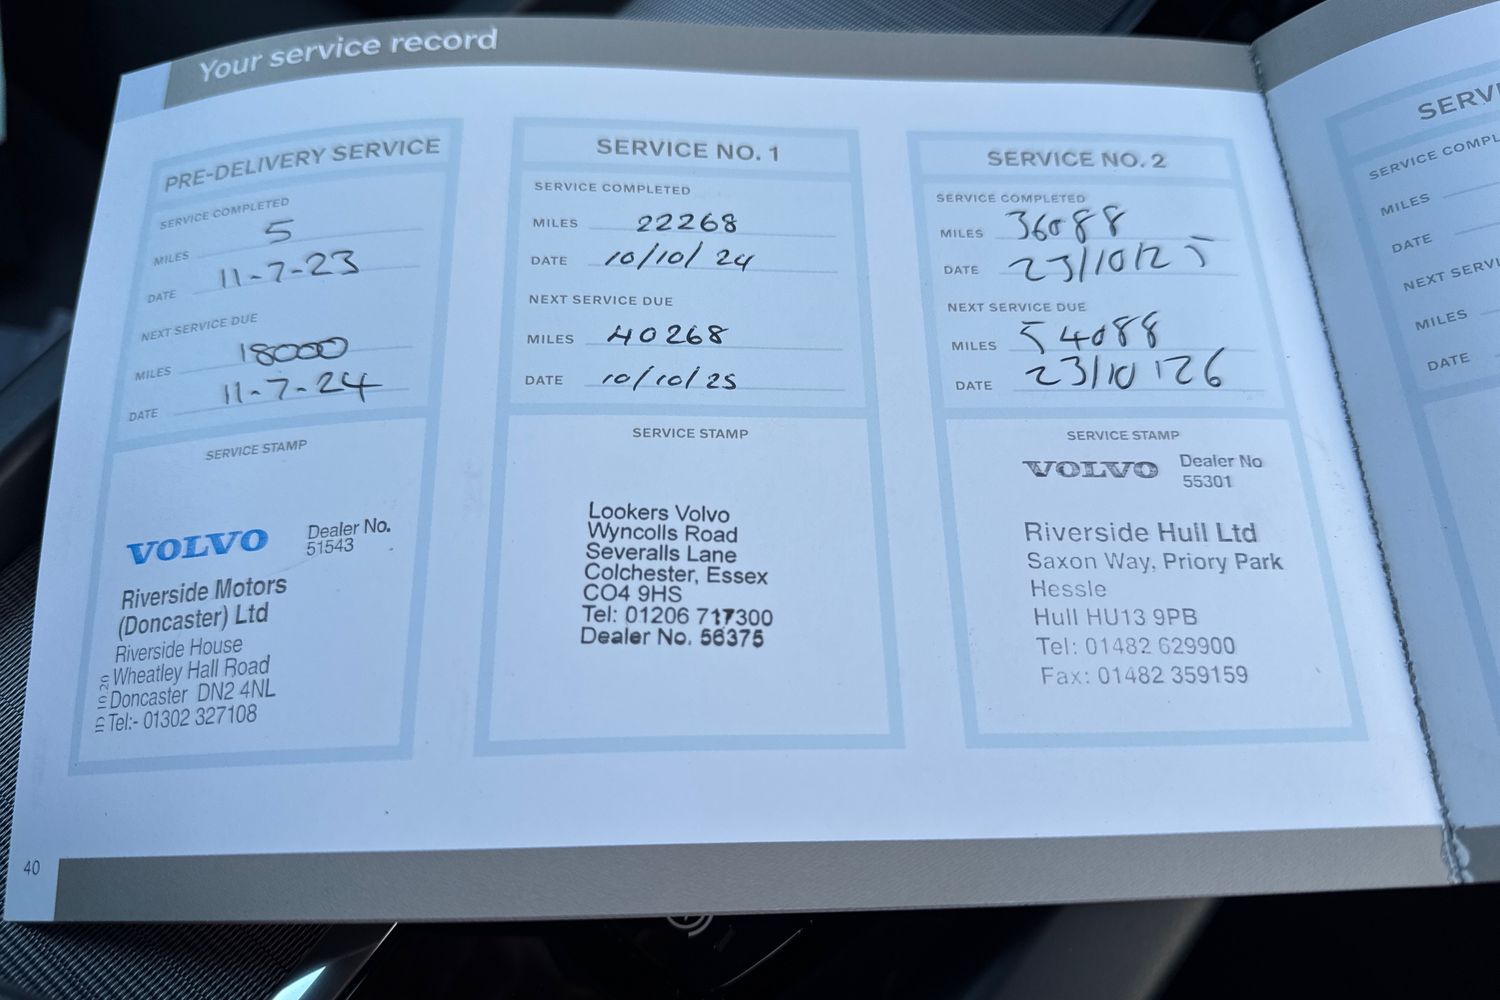 Your service record
PRE-DELIVERY SERVICE
SERVICE COMPLETED
MILES 5
DATE 11-7-23
NEXT SERVICE DUE
MILES 18000
DATE 11-7-24
SERVICE STAMP
VOLVO Dealer No.
51543
Riverside Motors
(Doncaster) Ltd
Riverside House
Wheatley Hall Road
Doncaster DN2 4NL
Tel:- 01302 327108
SERVICE NO. 1
SERVICE COMPLETED
MILES 22268
DATE 10/10/24
NEXT SERVICE DUE
MILES 40268
DATE 10/10/25
SERVICE STAMP
Lookers Volvo
Wyncolls Road
Severalls Lane
Colchester, Essex
CO4 9HS
Tel: 01206 717300
Dealer No. 56375
SERVICE NO. 2
SERVICE COMPLETED
MILES 36088
DATE 23/10/25
NEXT SERVICE DUE
MILES 54088
DATE 23/10/26
SERVICE STAMP
VOLVO Dealer No
55301
Riverside Hull Ltd
Saxon Way, Priory Park
Hessle
Hull HU13 9PB
Tel: 01482 629900
Fax: 01482 359159
SERVI
SERVICE COMPL
MILES
DATE
NEXT SERVI
MILES
DATE
40